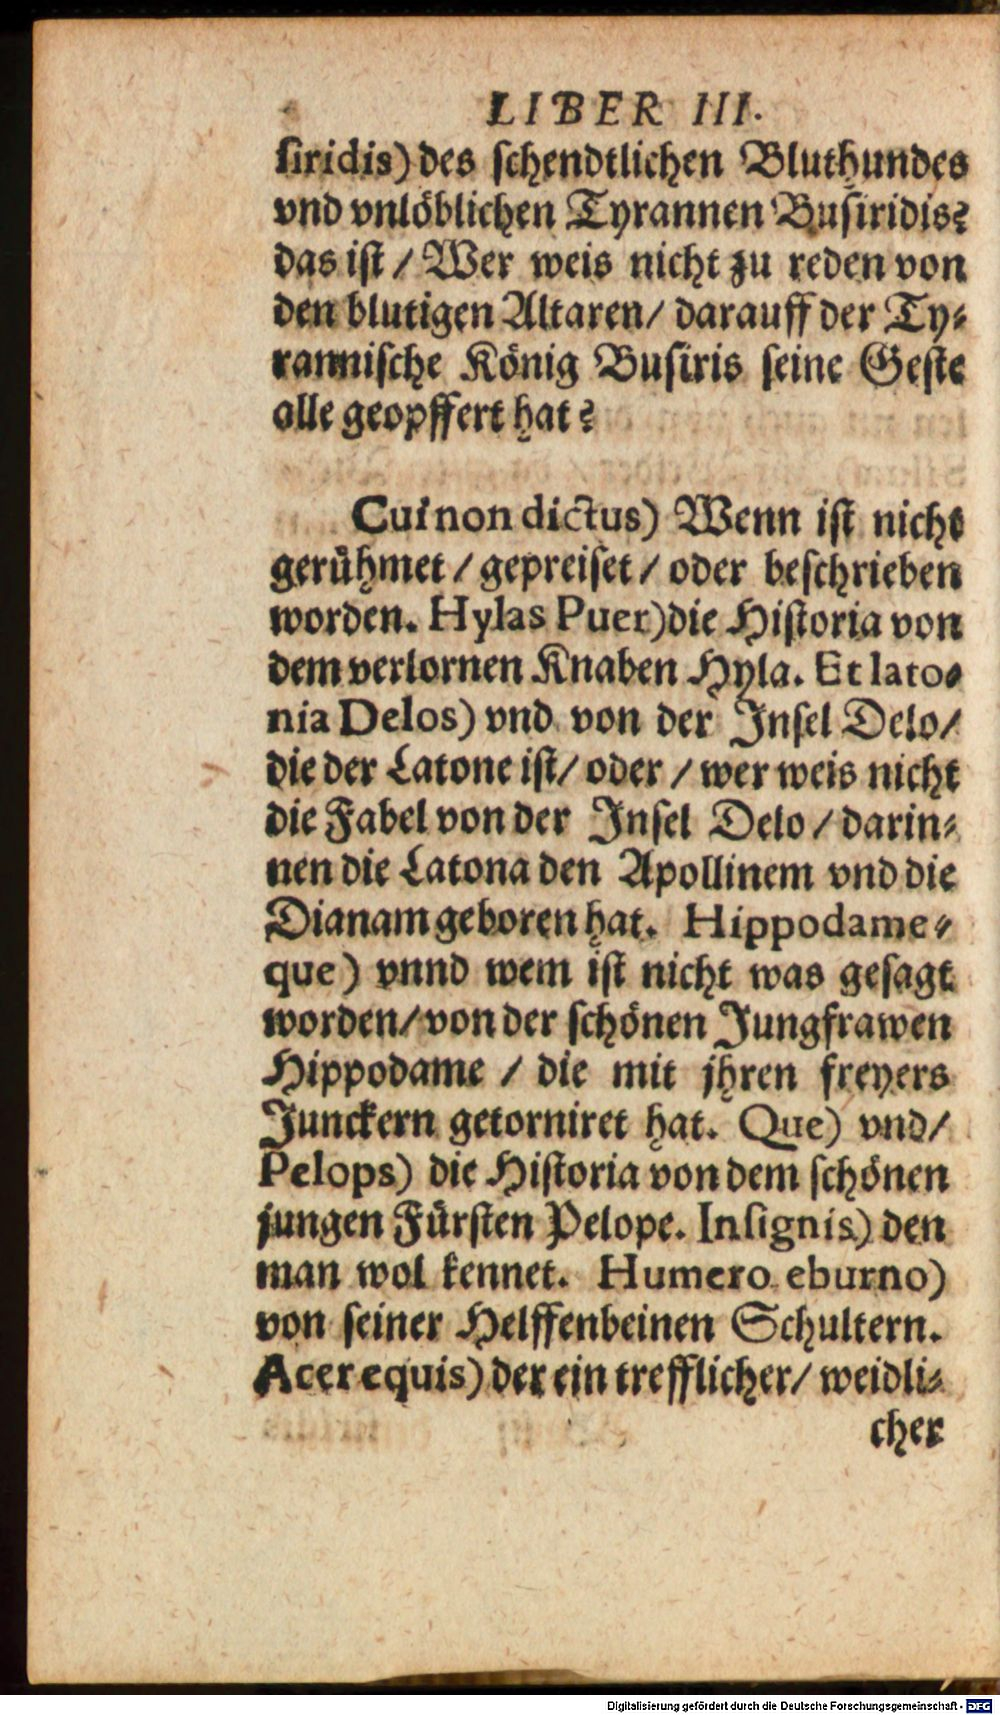 LIBER III.
ſiridis) des ſchendtlichen Bluthundes
vnd vnlöblichen Tyrannen Buſiridis?
das iſt / Wer weis nicht zu reden von
den blutigen Altaren / darauff der Ty⸗
rannische König Buſiris ſeine Geſte
alle geopffert hat?
Cui non dictus) Wenn iſt nicht
gerühmet / gepreiſet / oder beſchrieben
worden. Hylas Puer) die Hiſtoria von
dem verlornen Knaben Hyla. Et lato⸗
nia Delos) vnd von der Jnſel Delo /
die der Latone iſt / oder / wer weis nicht
die Fabel von der Jnſel Delo / darin⸗
nen die Latona den Apollinem vnd die
Dianam geboren hat. Hippodame⸗
que) vnnd wem iſt nicht was geſagt
worden / von der ſchönen Jungfrawen
Hippodame / die mit jhren freyers
Junckern getorniret hat. Que) vnd /
Pelops) die Hiſtoria von dem ſchönen
jungen Fürſten Pelope. Inſignis) den
man wol kennet. Humero eburno)
von ſeiner Helffenbeinen Schultern.
Acer equis) der ein trefflicher / weidli⸗
cher
Digitalisierung gefördert durch die Deutsche Forschungsgemeinschaft - DFG